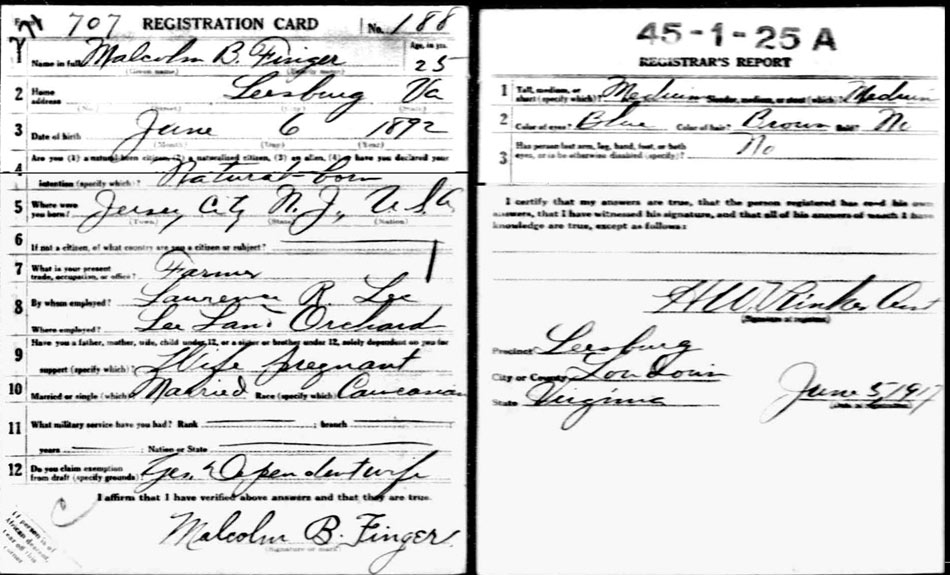 Form 707 REGISTRATION CARD No. 188
1 Name in full Malcolm B. Finger Age, in yrs. 25
(Given name) (Family name)
2 Home address Leesburg Va
(No.) (Street) (City) (State)
3 Date of birth June 6 1892
(Month) (Day) (Year)
4 Are you (1) a natural-born citizen, (2) a naturalized citizen, (3) an alien, (4) or have you declared your
intention (specify which)? Natural-born
5 Where were you born? Jersey City N.J. U.S.A
(Town) (State) (Nation)
6 If not a citizen, of what country are you a citizen or subject?
7 What is your present trade, occupation, or office? Farmer
8 By whom employed? Laurence R. Lee
Where employed? Lee Land Orchard
9 Have you a father, mother, wife, child under 12, or a sister or brother under 12, solely dependent on you for
support (specify which)? Wife pregnant
10 Married or single (which)? Married Race (specify which)? Caucasian
11 What military service have you had? Rank ; branch
years ; Nation or State
12 Do you claim exemption from draft (specify grounds)? Yes. Dependent wife
I affirm that I have verified above answers and that they are true.
Malcolm B. Finger.
(Signature or mark)
If person is of
African descent,
tear off this
corner
45-1-25 A
REGISTRAR'S REPORT
1 Tall, medium, or short (specify which)? Medium Slender, medium, or stout (which)? Medium
2 Color of eyes? Blue Color of hair? Brown Bald? No
3 Has person lost arm, leg, hand, foot, or both eyes, or is he otherwise disabled (specify)? No
I certify that my answers are true, that the person registered has read his own
answers, that I have witnessed his signature, and that all of his answers of which I have
knowledge are true, except as follows:
(Signature of registrar)
Precinct Leesburg
City or County Loudoun
State Virginia June 5, 1917
(Date of registration)